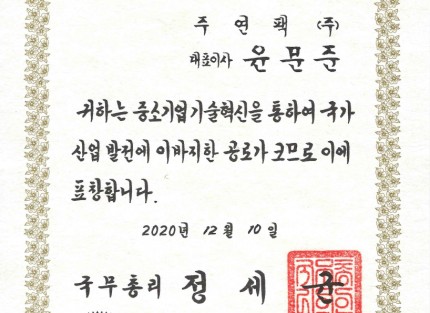 주 연 팩 (주)
대표이사 윤 문 준
귀하는 중소기업기술혁신을 통하여 국가
산업 발전에 이바지한 공로가 크므로 이에
표창합니다.
2020년 12월 10일
국무총리 정 세 균